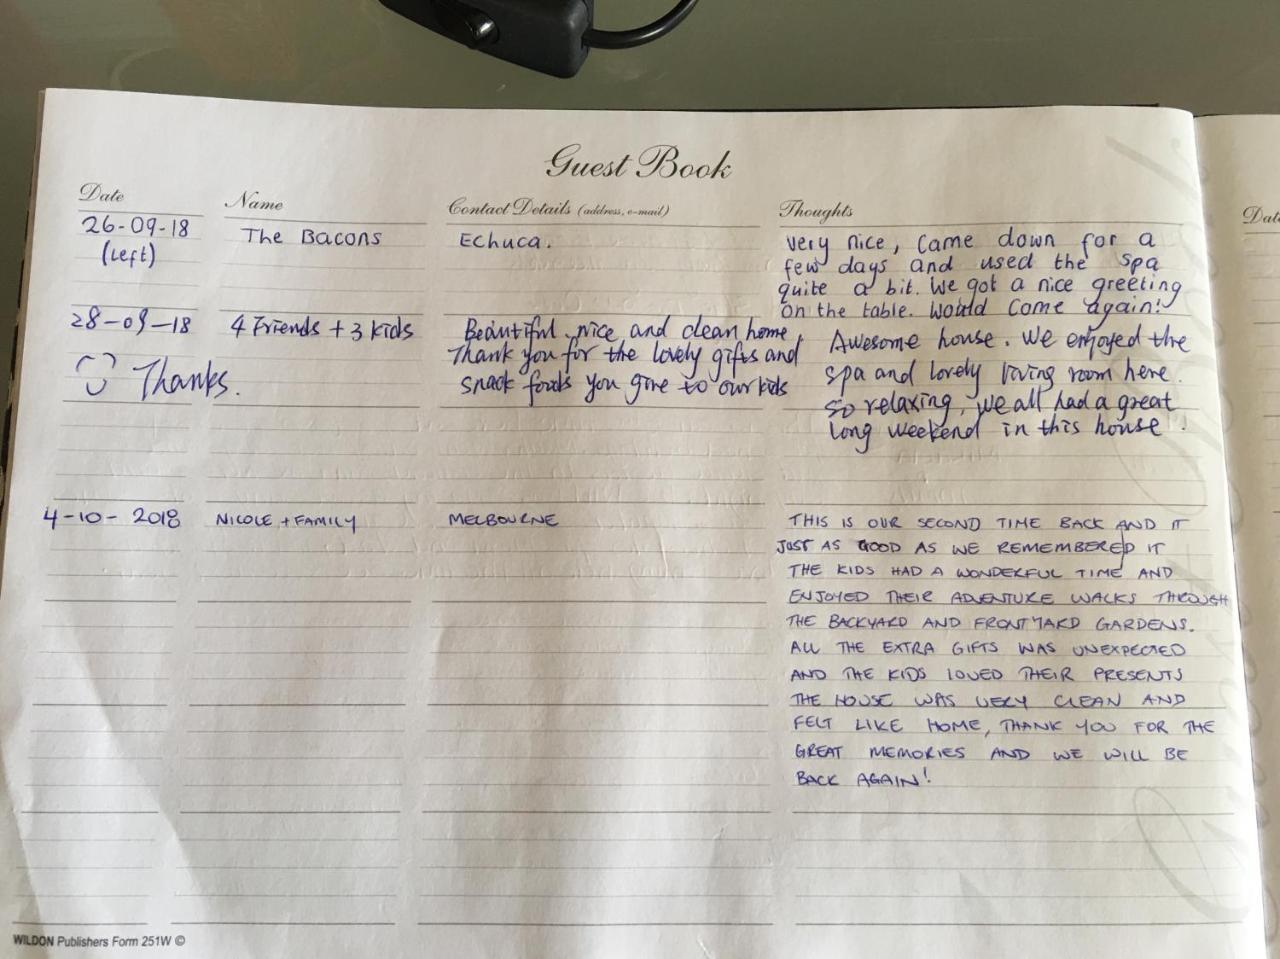 Guest Book
Date
Name
Contact Details (address, e-mail)
Thoughts
26-09-18
(Left)
The Bacons
Echuca.
Very nice, Came down for a
few days and used the spa
quite a bit. We got a nice greeting
on the table. Would come again!
28-09-18
4 Friends + 3 kids
Beautiful, nice and clean home,
Thank you for the lovely gifts and
snack foods you give to our kids
Thanks.
Awesome house. We enjoyed the
spa and lovely living room here.
so relaxing, we all had a great
long weekend in this house.
4-10-2018
NICOLE + FAMILY
MELBOURNE
THIS IS OUR SECOND TIME BACK AND IT
JUST AS GOOD AS WE REMEMBERED IT
THE KIDS HAD A WONDERFUL TIME AND
ENJOYED THEIR ADVENTURE WALKS THROUGH
THE BACKYARD AND FRONTYARD GARDENS.
ALL THE EXTRA GIFTS WAS UNEXPECTED
AND THE KIDS LOVED THEIR PRESENTS
THE HOUSE WAS VERY CLEAN AND
FELT LIKE HOME, THANK YOU FOR THE
GREAT MEMORIES AND WE WILL BE
BACK AGAIN!
WILDON Publishers Form 251W ©